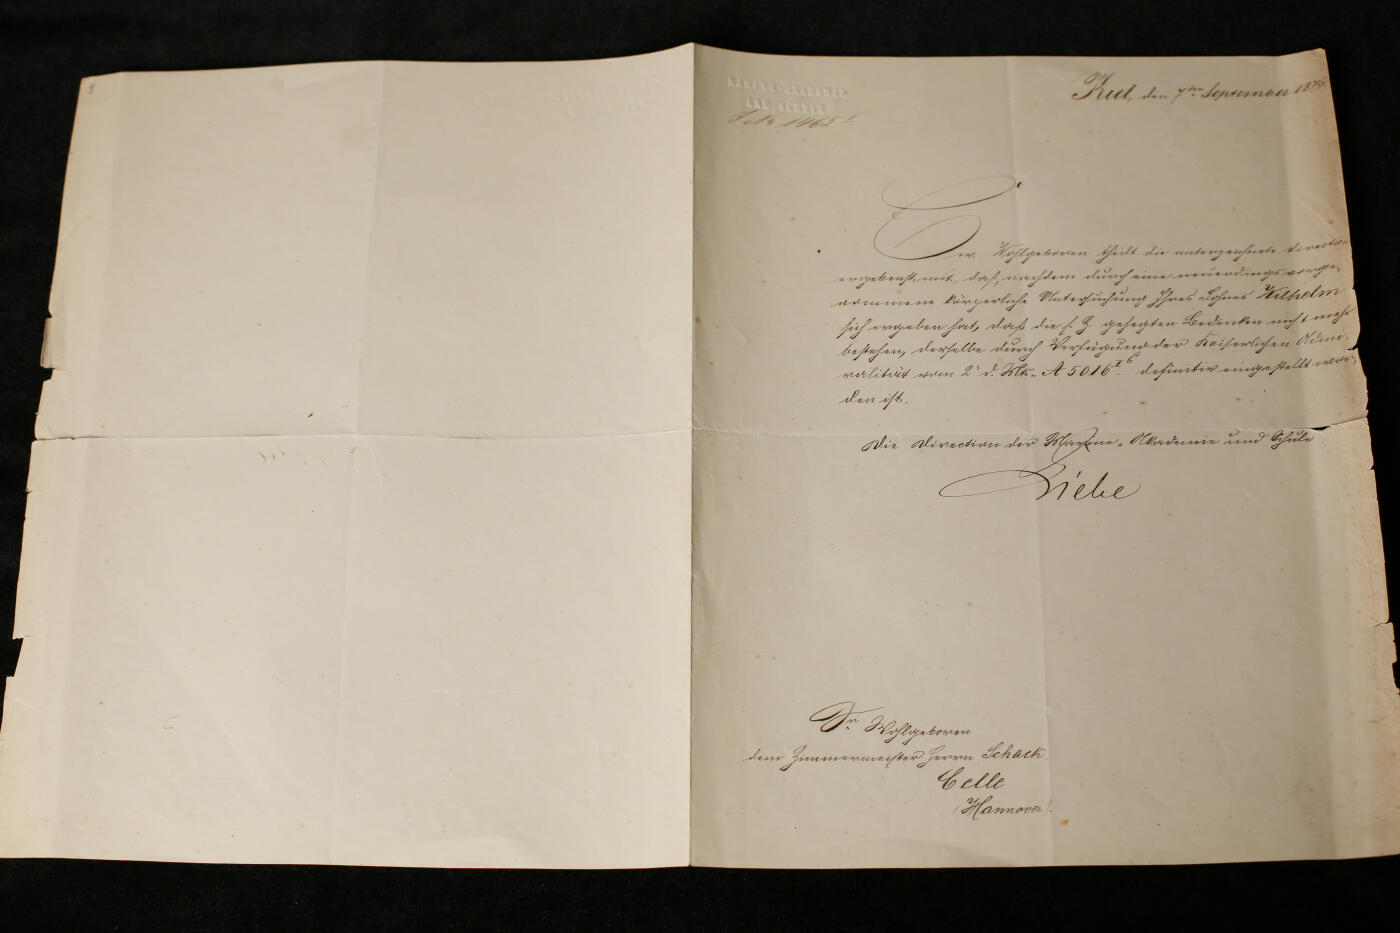 MARINE-AKADEMIE
UND SCHULE
J.No 1465 I
Kiel, den 7ten September 1876.
Ew. Wohlgeboren theilt die unterzeichnete Direction
ergebenst mit, daß, nachdem durch eine neuerdings vorge-
nommene körperliche Untersuchung Ihres Sohnes Wilhelm
sich ergeben hat, daß die s. Z. gehegten Bedenken nicht mehr
bestehen, derselbe durch Verfügung der Kaiserlichen Admi-
ralität vom 2. d. Mts. A 5016 I 6 definitiv eingestellt wor-
den ist.
Die Direction der Marine-Akademie und Schule
Liebe
Sr. Wohlgeboren
dem Zimmermeister Herrn Schack
Celle
(Hannover).